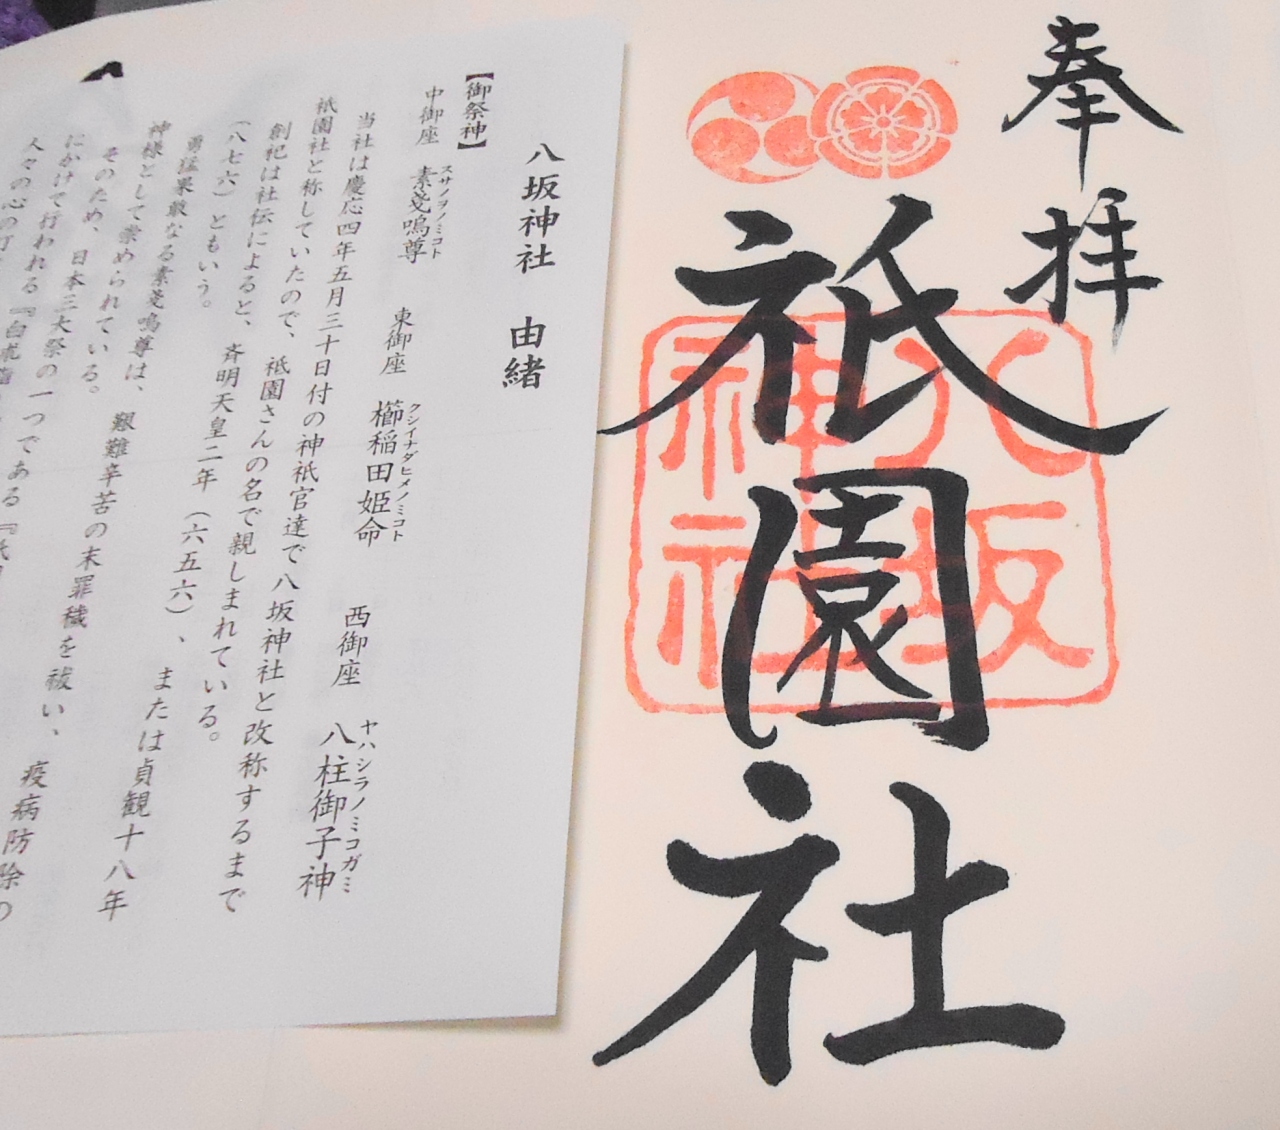 奉拝
祇園社
八坂神社
八坂神社　由緒
【御祭神】
中御座　素戔嗚尊　東御座　櫛稲田姫命　西御座　八柱御子神
スサノヲノミコト　クシイナダヒメノミコト　ヤハシラノミコガミ
当社は慶応四年五月三十日付の神祇官達で八坂神社と改称するまで
祇園社と称していたので、祇園さんの名で親しまれている。
創祀は社伝によると、斉明天皇二年（六五六）、または貞観十八年
（八七六）ともいう。
勇猛果敢なる素戔嗚尊は、艱難辛苦の末罪穢を祓い、疫病防除の
神様として崇められている。
そのため、日本三大祭の一つである『祇
にかけて行われる『白朮詣
人々の心の